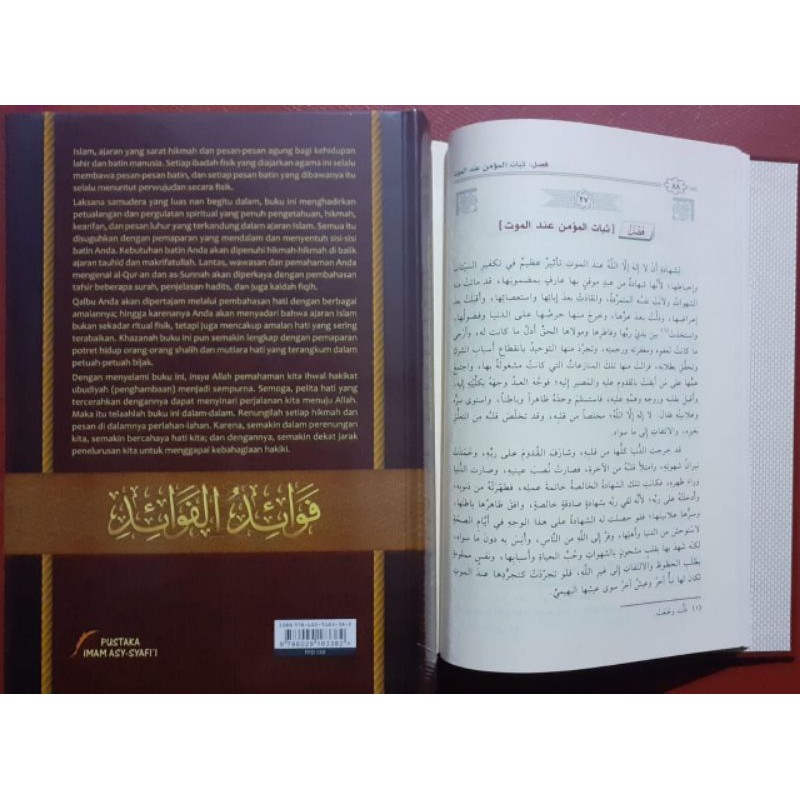 Islam, ajaran yang sarat hikmah dan pesan-pesan agung bagi kehidupan
lahir dan batin manusia. Setiap ibadah fisik yang diajarkan agama ini selalu
membawa pesan-pesan batin, dan setiap pesan batin yang dibawanya itu
selalu menuntut perwujudan secara fisik.
Laksana samudera yang luas nan begitu dalam, buku ini menghadirkan
petualangan dan pergulatan spiritual yang penuh pengetahuan, hikmah,
kearifan, dan pesan luhur yang terkandung dalam ajaran Islam. Semua itu
disuguhkan dengan pemaparan yang mendalam dan menyentuh sisi-sisi
batin Anda. Kebutuhan batin Anda akan dipenuhi hikmah-hikmah di balik
ajaran tauhid dan makrifatullah. Lantas, wawasan dan pemahaman Anda
mengenai al-Qur-an dan as-Sunnah akan diperkaya dengan pembahasan
tafsir beberapa surah, penjelasan hadits, dan juga kaidah fiqih.
Qalbu Anda akan dipertajam melalui pembahasan hati dengan berbagai
amalannya; hingga karenanya Anda akan menyadari bahwa ajaran Islam
bukan sekadar ritual fisik, tetapi juga mencakup amalan hati yang sering
terabaikan. Khazanah buku ini pun semakin lengkap dengan pemaparan
potret hidup orang-orang shalih dan mutiara hati yang terangkum dalam
petuah-petuah bijak.
Dengan menyelami buku ini, insya Allah pemahaman kita ihwal hakikat
ubudiyah (penghambaan) menjadi sempurna. Semoga, pelita hati yang
tercerahkan dengannya dapat menyinari perjalanan kita menuju Allah.
Maka itu telaahlah buku ini dalam-dalam. Renungilah setiap hikmah dan
pesan di dalamnya perlahan-lahan. Karena, semakin dalam perenungan
kita, semakin bercahaya hati kita; dan dengannya, semakin dekat jarak
penelurusan kita untuk menggapai kebahagiaan hakiki.
فَوَائِدُ الفَوَائِدِ
PUSTAKA
IMAM ASY-SYAFI'I
فصل: ثبات المؤمن عند الموت
٨٨
٢٧
فصل [ ثبات المؤمن عند الموت ]
لشهادةِ أنْ لا إله إلَّا اللَّهُ عند الموت تأثيرٌ عظيمٌ في تكفير السيِّئات
وإحباطِها؛ لأنَّها شهادةٌ من عبدٍ موقنٍ بها عارفٍ بمضمونها، قد ماتَتْ منه
الشهواتُ ولانَتْ نفسُه المتمرِّدةُ، وانقادتْ بعدَ إبائِها واستعصائِها، وأقبلَتْ بعد
إعراضِها، وذلَّت بعدَ عزِّها، وخرجَ منها حرصُها على الدنيا وفضولِها،
واستخذَتْ(١) بين يديْ ربِّها وفاطرِها ومولاها الحقِّ أذلَّ ما كانت له، وأرْجى
ما كانت لعفوِه ومغفرتِه ورحمتِه، وتجرَّدَ منها التوحيدُ بانقطاعِ أسبابِ الشركِ
وتحقُّقِ بطلانِه، فزالَتْ منها تلك المنازعاتُ التي كانتْ مشغولةً بها، واجتمعَ
همُّها على مَن أيقنَتْ بالقدومِ عليه والمصيرِ إليه؛ فوجَّه العبدُ وجهَهُ بكلِّيَّتِه إليه،
وأقبلَ بقلبِه وروحِه وهمِّه عليه، فاستسلمَ وحدَهُ ظاهراً وباطناً، واستوى سرُّه
وعلانيتُه فقال: لا إله إلَّا اللَّهُ؛ مخلصاً من قلبِه، وقد تخلَّصَ قلبُه من التعلُّقِ
بغيرِه، والالتفاتِ إلى ما سواه.
قد خرجتِ الدُّنيا كلُّها من قلبِه، وشارفَ القدومَ على ربِّه، وخمدَتْ
نيرانُ شهوتِه، وامتلأَ قلبُه من الآخرةِ، فصارتْ نُصْبَ عينيهِ، وصارتِ الدُّنيا
وراءَ ظهرِه، فكانت تلك الشهادةُ الخالصةُ خاتمةَ عملِه، فطهَّرَتْهُ من ذنوبِه،
وأدخلَتْهُ على ربِّه؛ لأنَّه لقي ربَّه بشهادةٍ صادقةٍ خالصةٍ، وافقَ ظاهرُها باطنَها،
وسرُّها علانيتَها؛ فلو حصلَتْ له الشهادةُ على هذا الوجهِ في أيَّامِ الصحَّةِ
لاستوحشَ من الدنيا وأهلِها، وفرَّ إلى اللَّهِ من النَّاسِ، وأَنِسَ به دونَ ما سواه،
لكنَّه شهدَ بها بقلبٍ مشحونٍ بالشهواتِ وحُبِّ الحياةِ وأسبابِها، ونفسٍ مملوءةٍ
بطلبِ الحظوظِ والالتفاتِ إلى غيرِ اللَّهِ، فلو تجرَّدَتْ كتجرُّدِها عندَ الموتِ
لكانَ لها نبأٌ آخرُ وعيشٌ آخرُ سوى عيشِها البهيميِّ.
(١) ذلَّت وخضعَتْ.